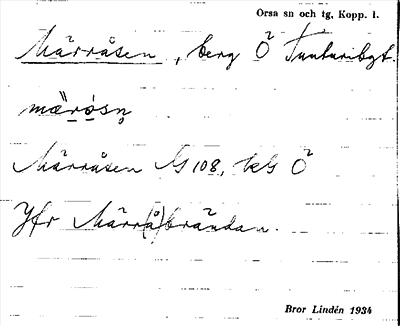 Orsa sn och tg, Kopp. l.
Märråsen, berg Ö Tunturibgt.
mä̀rǫsn̥
Märråsen G 108, kG Ö
Jfr Märr(å)brändan.
Bror Lindén 1934